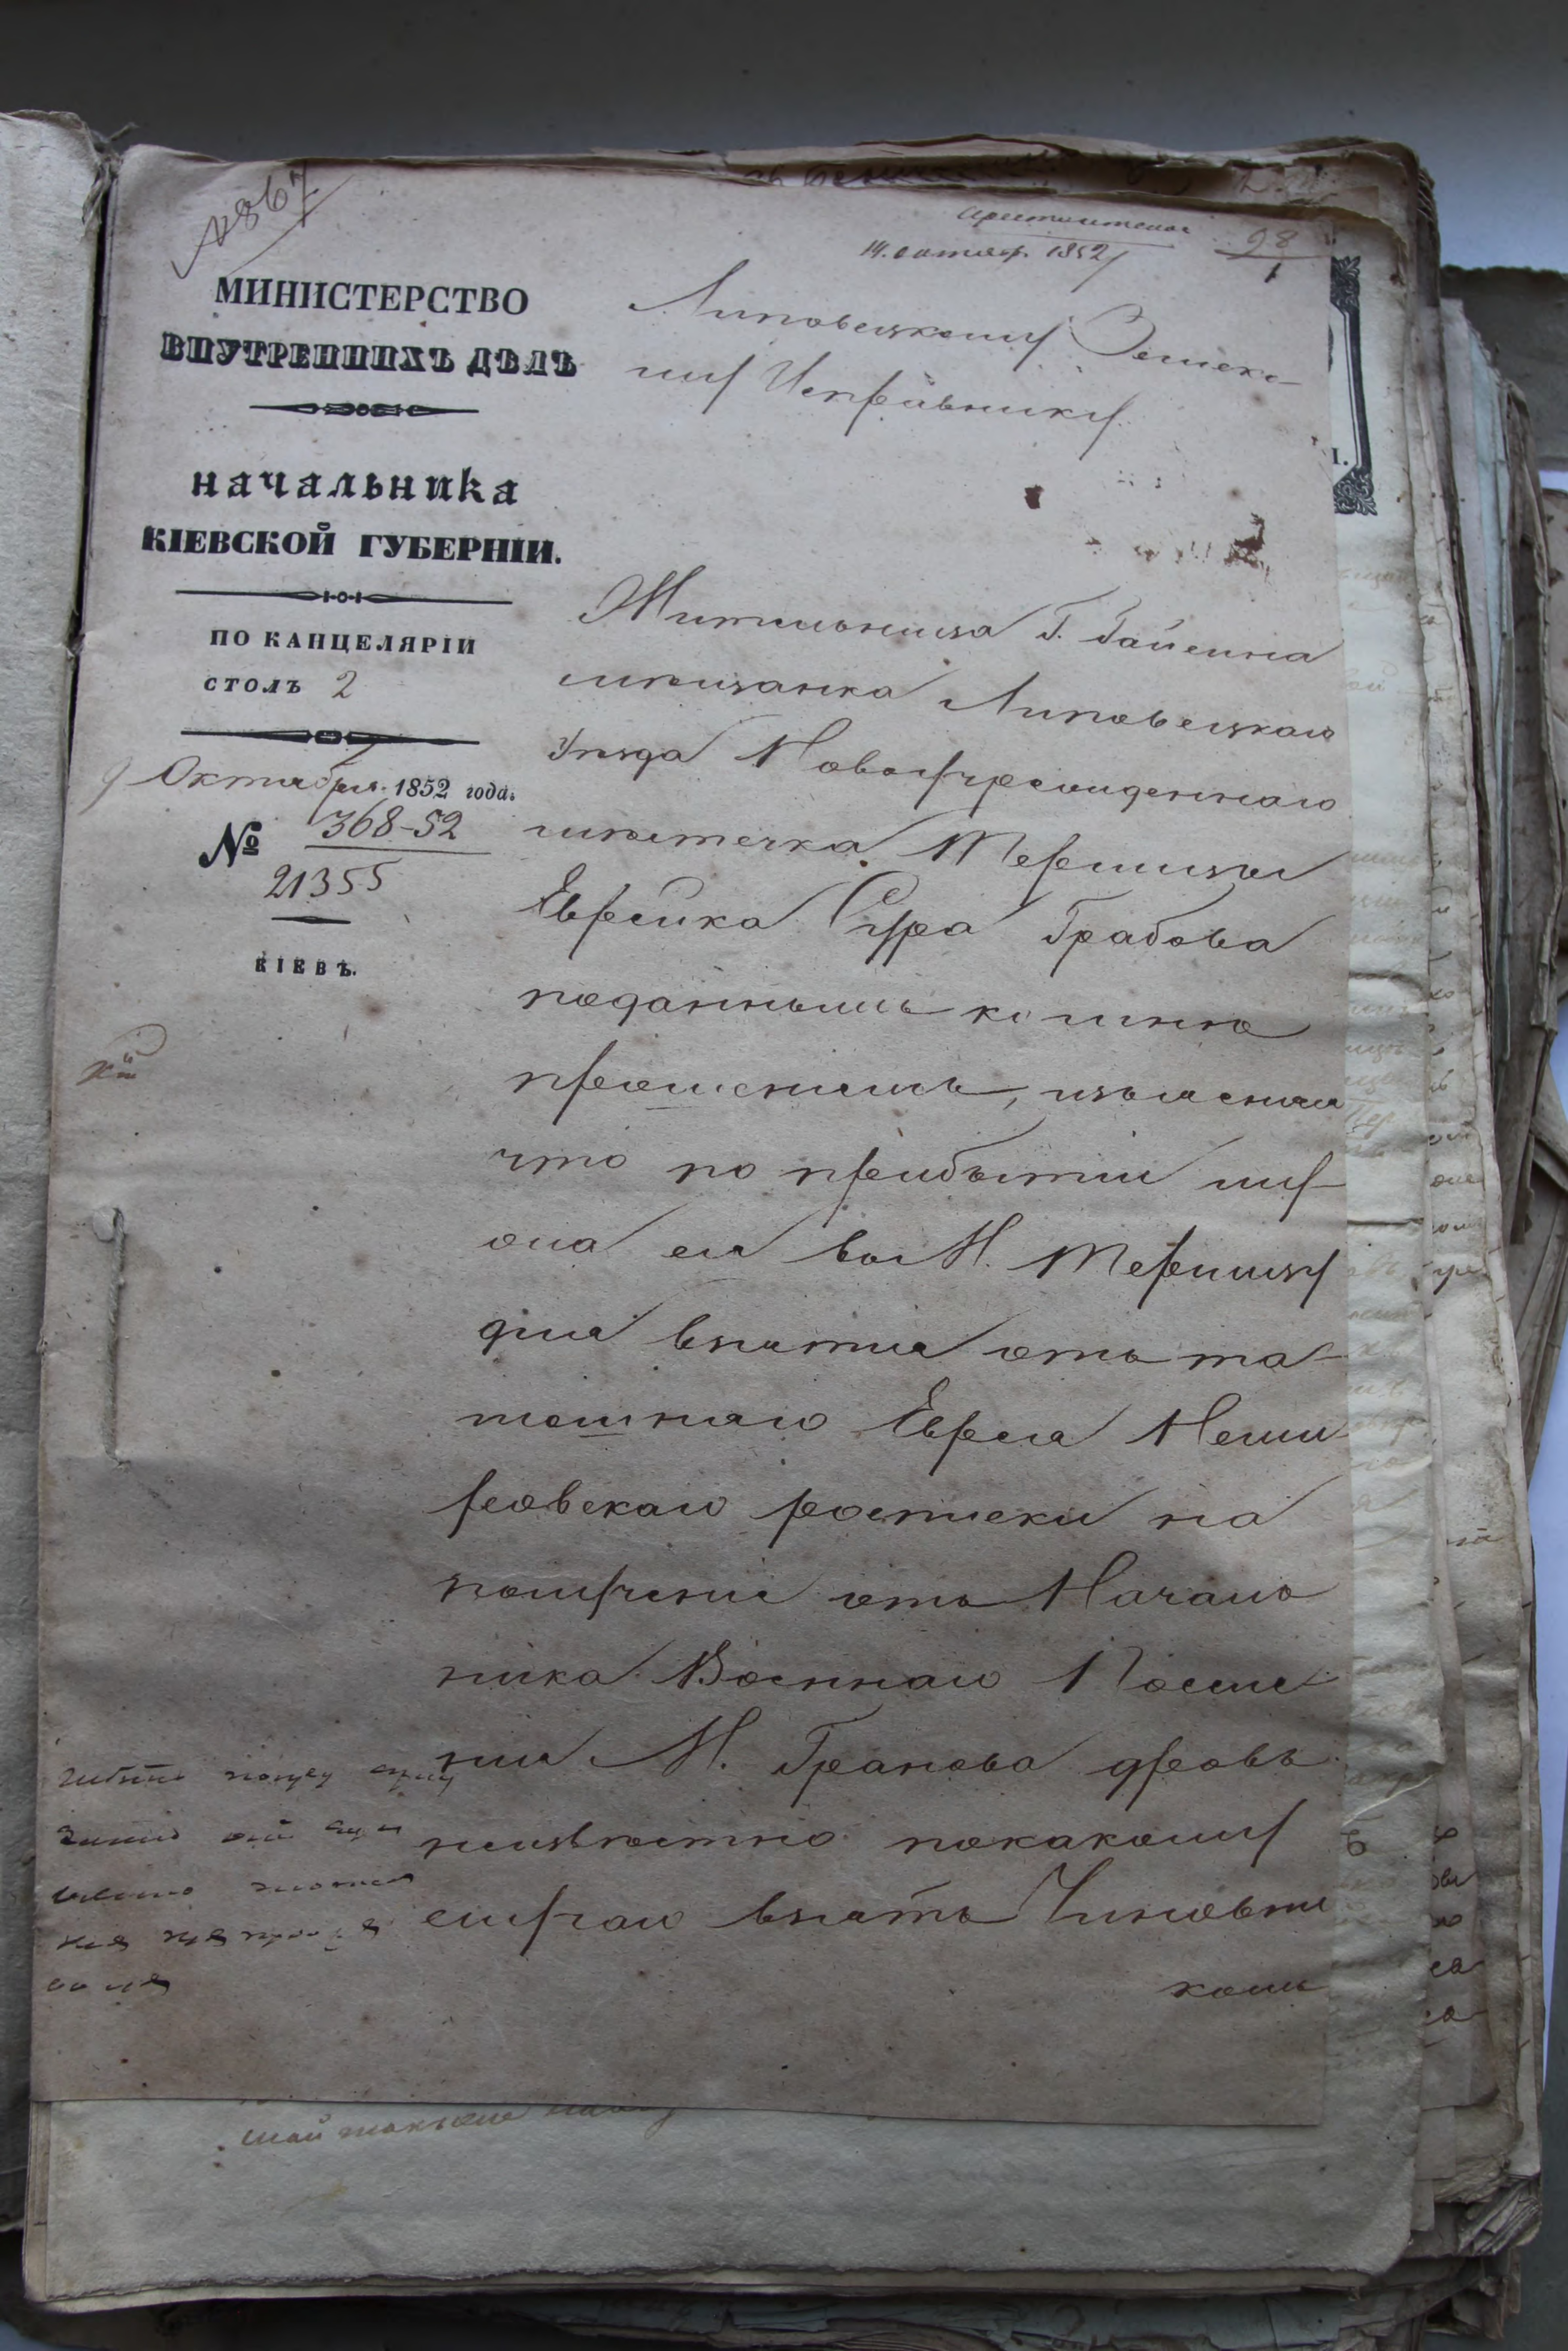 4867
14. октяб. 1852
98
МИНИСТЕРСТВО
ВНУТРЕННИХЪ ДѢЛЪ
НАЧАЛЬНИКА
КІЕВСКОЙ ГУБЕРНІИ.
ПО КАНЦЕЛЯРІИ
СТОЛЪ 2
9 Октября 1852 года.
№ 368-52
21355
КІЕВЪ.
Липовецкому Земско-
му Исправнику.
Жительница Г. Гайсина
мѣщанка Липовецкаго
Уѣзда Новоучрежденнаго
мѣстечка Терлицы
Еврейка Сура Грабова
поданнымъ ко мнѣ
прошеніемъ, изъяснила
что по прибытіи му-
жа ея въ М. Терлицу
для взятія отъ та-
мошняго Еврея Неми-
ровскаго росписки на
полученіе отъ Началь
ника Военнаго Поселе-
нія М. Гранова дровъ
неизвѣстно по какому
случаю взятъ Чиновни
комъ